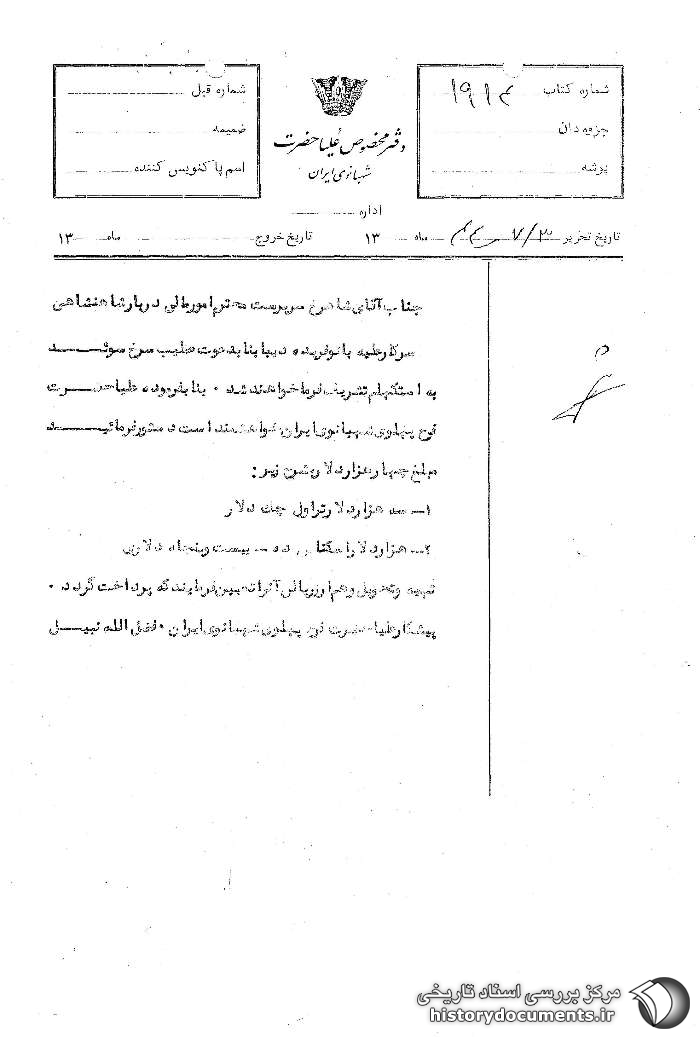 شماره کتاب ۱۹۱۴
جزوه‌دان
پوشه
دفتر مخصوص علیاحضرت
شهبانوی ایران
شماره قبل
ضمیمه
اسم پاکنویس کننده
اداره
تاریخ تحریر ۷/۳ ماه ۱۳
تاریخ خروج ماه ۱۳
جناب آقای شاهرخ سرپرست محترم امور مالی دربار شاهنشاهی
سرکار علیه بانو فریده دیبا بنا بدعوت صلیب سرخ سوئد
به استکهلم تشریف فرما خواهند شد ۰ بنا بفرموده علیاحضرت
فرح پهلوی شهبانوی ایران خواهشمند است دستور فرمائید
مبلغ چهار هزار دلار بشرح زیر :
۱- سه هزار دلار تراولر چک دلار
۲- هزار دلار اسکناس ده - بیست و پنجاه دلاری
تهیه و تحویل و هم ارز ریالی آنرا تعیین فرمایند که پرداخت گردد ۰
پیشکار علیاحضرت فرح پهلوی شهبانوی ایران ۰ فضل الله نبیل
مرکز بررسی اسناد تاریخی
historydocuments.ir